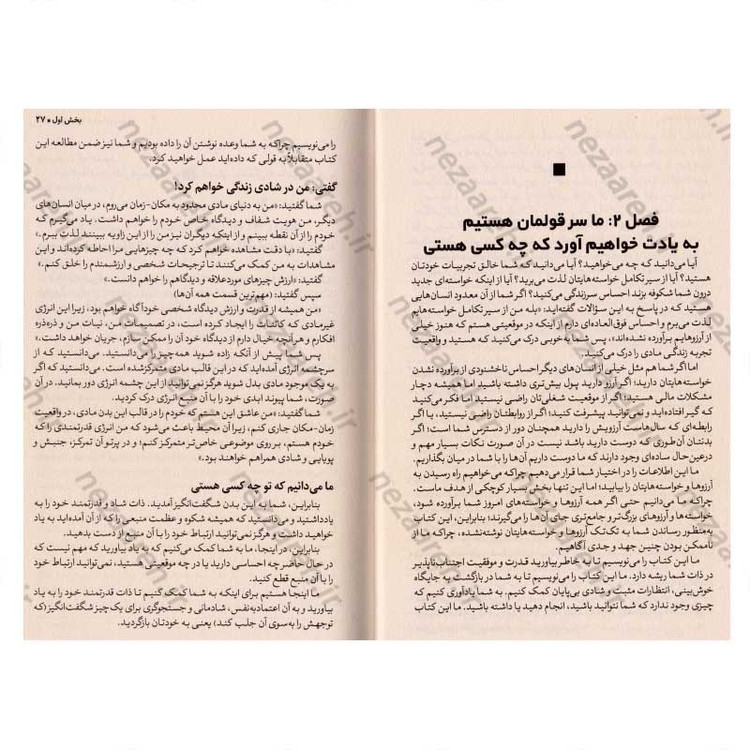 فصل ۲: ما سر قولمان هستیم
به یادت خواهیم آورد که چه کسی هستی
آیا می‌دانید که چه می‌خواهید؟ آیا می‌دانید که شما خالق تجربیات خودتان
هستید؟ آیا از سیر تکامل خواسته‌هایتان لذت می‌برید؟ آیا از اینکه آرزوی جدیدی
درون شما شکوفه بزند احساس سرزندگی می‌کنید؟ اگر شما از آن معدود انسان‌هایی
هستید که در پاسخ به این سؤالات گفته‌اید: «بله من از سیر تکامل خواسته‌هایم
لذت می‌برم و احساس فوق‌العاده‌ای دارم از اینکه در موقعیتی هستم که هنوز خیلی
از آرزوهایم برآورده نشده‌اند»، پس شما به‌خوبی درک می‌کنید که کی هستید و واقعیت
تجربه زندگی مادی را درک می‌کنید.
اما اگر شما هم مثل خیلی از انسان‌های دیگر احساس ناخشنودی از برآورده نشدن
خواسته‌هایتان دارید؛ اگر آرزو دارید پول بیش‌تری داشته باشید اما همیشه دچار
مشکلات مالی هستید؛ اگر از موقعیت شغلی‌تان راضی نیستید اما فکر می‌کنید
که گیر افتاده‌اید و نمی‌توانید پیشرفت کنید؛ اگر از روابطتان راضی نیستید، یا اگر
رابطه‌ای که سال‌هاست آرزویش را دارید همچنان دور از دسترس شما است؛ اگر
بدنتان آن‌طوری که دوست دارید باشد نیست در آن صورت نکات بسیار مهم و
درعین‌حال ساده‌ای وجود دارند که ما دوست داریم آن‌ها را با شما در میان بگذاریم.
ما این اطلاعات را در اختیار شما قرار می‌دهیم چراکه می‌خواهیم راه رسیدن به
آرزوها و خواسته‌هایتان را بیابید؛ اما این تنها بخش بسیار کوچکی از هدف ماست.
چراکه ما می‌دانیم حتی اگر همه آرزوها و خواسته‌های امروز شما برآورده شود،
خواسته‌ها و آرزوهای بزرگ‌تر و جامع‌تری جای آن‌ها را می‌گیرند؛ بنابراین، این کتاب
به‌منظور رساندن شما به تک‌تک آرزوها و خواسته‌هایتان نوشته‌نشده، چراکه ما از
ناممکن بودن چنین جهد و جدی آگاهیم.
ما این کتاب را می‌نویسیم تا به خاطر بیاورید قدرت و موفقیت اجتناب‌ناپذیر
در ذات شما ریشه دارد. ما این کتاب را می‌نویسیم تا به شما در بازگشت به جایگاه
خوش‌بینی، انتظارات مثبت و شادی بی‌پایان کمک کنیم. به شما یادآوری کنیم که
چیزی وجود ندارد که شما نتوانید باشید، انجام دهید یا داشته باشید. ما این کتاب
بخش اول • ۲۷
را می‌نویسیم چراکه به شما وعده نوشتن آن را داده بودیم و شما نیز ضمن مطالعه این
کتاب متقابلاً به قولی که داده‌اید عمل خواهید کرد.
گفتی: من در شادی زندگی خواهم کرد!
شما گفتید: «من به دنیای مادی محدود به مکان-زمان می‌روم، در میان انسان‌های
دیگر، من هویت شفاف و دیدگاه خاص خودم را خواهم داشت. یاد می‌گیرم که
خودم را از آن نقطه ببینم و از اینکه دیگران نیز من را از این زاویه ببینند لذت ببرم.»
گفتید: «با دقت مشاهده خواهم کرد که چه چیزهایی مرا احاطه کرده‌اند و این
مشاهدات به من کمک می‌کنند تا ترجیحات شخصی و ارزشمندم را خلق کنم.»
گفتید: «ارزش چیزهای موردعلاقه و دیدگاهم را خواهم دانست.»
سپس گفتید: (مهم‌ترین قسمت همه آن‌ها)
«من همیشه از قدرت و ارزش دیدگاه شخصی خودآگاه خواهم بود، زیرا این انرژی
غیرمادی که کائنات را ایجاد کرده است، در تصمیمات من، نیات من و ذره‌ذره
افکارم و هرآنچه خیال دارم از دیدگاه خود آن را ممکن سازم، جریان خواهد داشت.»
پس شما پیش از آنکه زاده شوید همه‌چیز را می‌دانستید. می‌دانستید که از
سرچشمه انرژی آمده‌اید که در این قالب مادی متمرکزشده است. می‌دانستید که اگر
به یک موجود مادی بدل شوید هرگز نمی‌توانید از این چشمه انرژی دور بمانید. در آن
صورت، شما پیوند ابدی خود را با آن منبع انرژی درک کردید.
شما گفتید: «من عاشق این هستم که خودم را در قالب این بدن مادی، در واقعیت
زمان-مکان جاری کنم، زیرا آن محیط باعث می‌شود که من انرژی قدرتمندی را که
خودم هستم، بر روی موضوعی خاص‌تر متمرکز کنم؛ و در پرتو آن تمرکز، جنبش و
پویایی و شادی همراهم خواهند بود.»
ما می‌دانیم که تو چه کسی هستی
بنابراین، شما به این بدن شگفت‌انگیز آمدید. ذات شاد و قدرتمند خود را به
یادداشتید و می‌دانستید که همیشه شکوه و عظمت منبعی را که از آن آمده‌اید به یاد
خواهید داشت و هرگز نمی‌توانید ارتباط خود را با آن منبع از دست بدهید.
بنابراین، در اینجا، ما به شما کمک می‌کنیم که به یاد بیاورید که مهم نیست که
در حال حاضر چه احساسی دارید یا در چه موقعیتی هستید، نمی‌توانید ارتباط خود
را با آن منبع قطع کنید.
ما اینجا هستیم برای اینکه به شما کمک کنیم تا ذات قدرتمند خود را به یاد
بیاورید و به آن اعتمادبه‌نفس، شادمانی و جستجوگری برای یک‌چیز شگفت‌انگیز (که
توجهش را به‌سوی آن جلب کند) یعنی به خودتان بازگردید.
nezaareh.ir